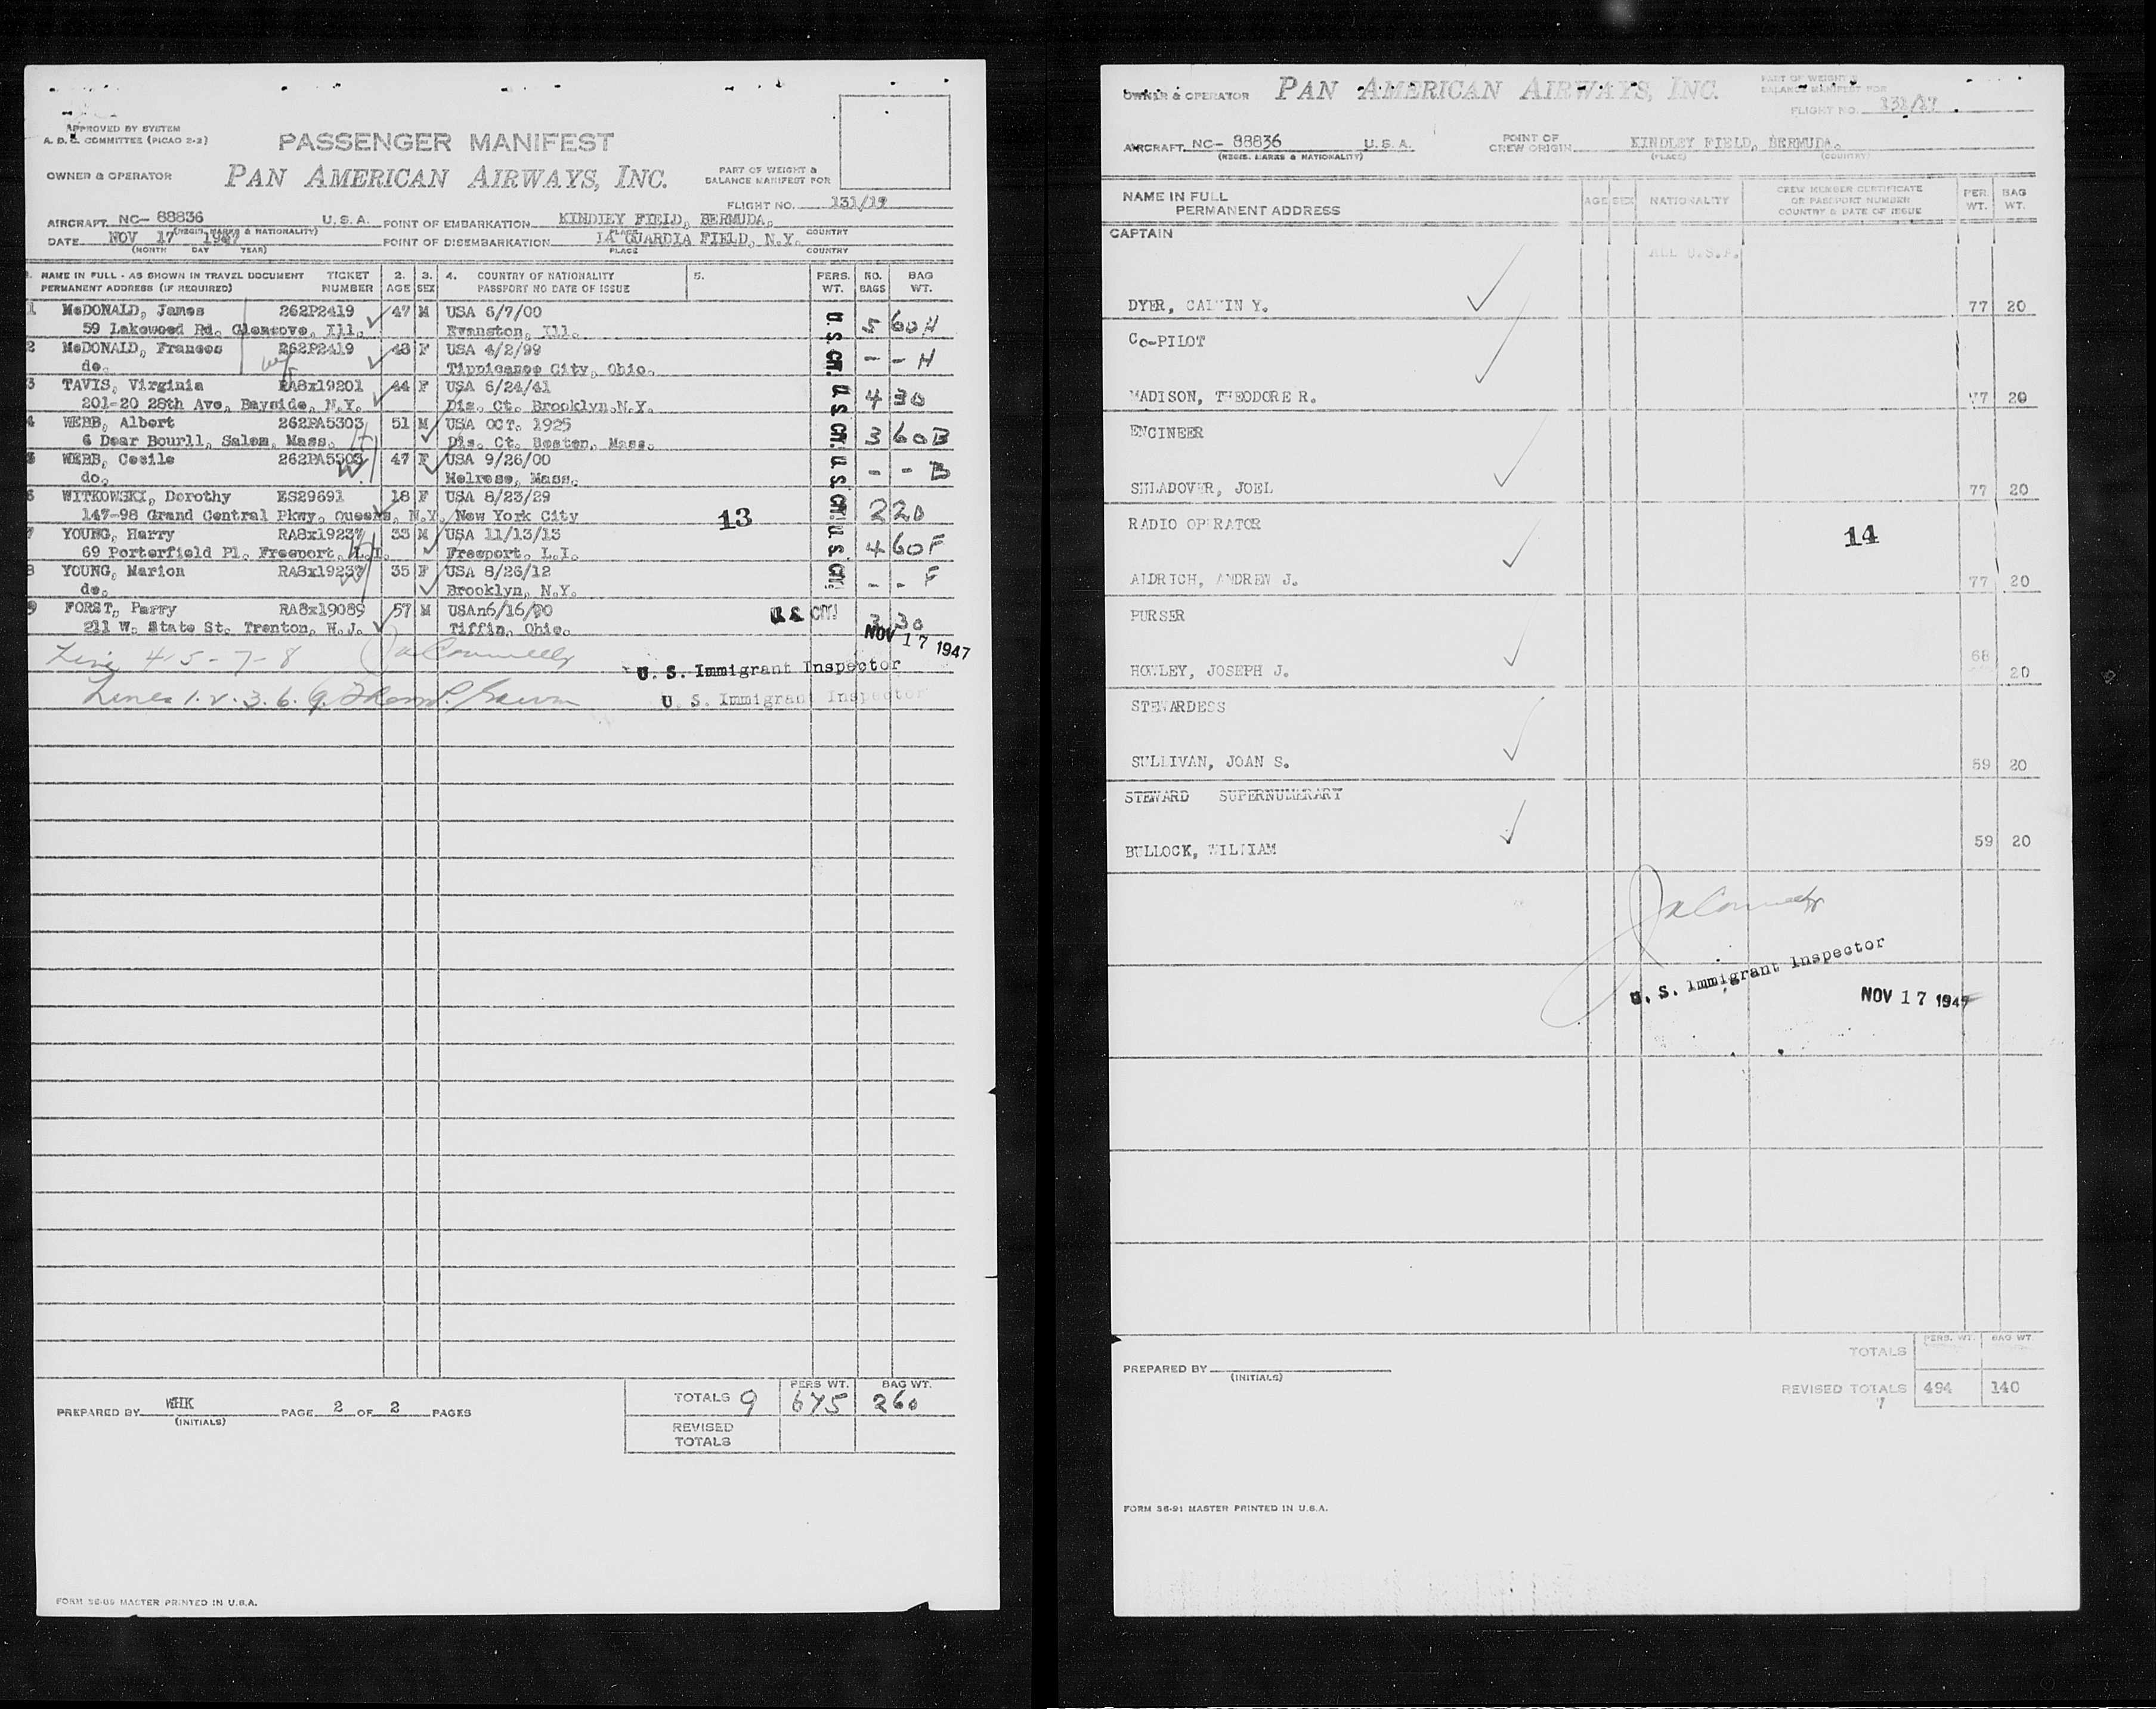 APPROVED BY SYSTEM
A. D. C. COMMITTEE (PICAO 2-2)
PASSENGER MANIFEST
OWNER & OPERATOR PAN AMERICAN AIRWAYS, INC.
PART OF WEIGHT &
BALANCE MANIFEST FOR
FLIGHT NO. 131/17
AIRCRAFT NC- 88836 U.S.A. POINT OF EMBARKATION KINDLEY FIELD, BERMUDA.
(REGIS. MARKS & NATIONALITY) PLACE COUNTRY
DATE NOV 17 1947 POINT OF DISEMBARKATION LA GUARDIA FIELD, N.Y.
(MONTH DAY YEAR) PLACE COUNTRY
1. NAME IN FULL - AS SHOWN IN TRAVEL DOCUMENT TICKET 2. 3. 4. COUNTRY OF NATIONALITY 5. PERS. NO. BAG
PERMANENT ADDRESS (IF REQUIRED) NUMBER AGE SEX PASSPORT NO DATE OF ISSUE WT. BAGS WT.
1 McDONALD, James 262P2419 47 M USA 6/7/00 U.S. CIT. 5 60 H
59 Lakewood Rd. Glencove, Ill. Evanston, Ill.
2 McDONALD, Frances 262P2419 48 F USA 4/2/99 - - H
do. Tippicanoe City, Ohio.
3 TAVIS, Virginia RA8x19201 44 F USA 6/24/41 U.S. CIT. 4 30
201-20 28th Ave, Bayside, N.Y. Dis. Ct. Brooklyn, N.Y.
4 WEBB, Albert 262PA5303 51 M USA OCT. 1925 3 60 B
6 Dear Bourll, Salem, Mass. Dis. Ct. Boston, Mass.
5 WEBB, Cecile 262PA5303 47 F USA 9/26/00 U.S. CIT. - - B
do. Melrose, Mass.
6 WITKOWSKI, Dorothy ES29691 18 F USA 8/23/29 2 20
147-98 Grand Central Pkwy, Queens, N.Y. New York City 13
7 YOUNG, Harry RA8x19237 33 M USA 11/13/13 U.S. CIT. 4 60 F
69 Porterfield Pl. Freeport, L.I. Freeport, L.I.
8 YOUNG, Marion RA8x19237 35 F USA 8/26/12 - - F
do. Brooklyn, N.Y.
9 FORST, Perry RA8x19089 57 M USAn6/16/90 U.S. CIT. 3 30
211 W. State St. Trenton, N.J. Tiffin, Ohio.
NOV 17 1947
Line 4-5-7-8
U. S. Immigrant Inspector
Lines 1. 2. 3. 6. 9.
U. S. Immigrant Inspector
PREPARED BY WHK PAGE 2 OF 2 PAGES
(INITIALS)
PERS WT. BAG WT.
TOTALS 9 675 260
REVISED
TOTALS
FORM 36-89 MASTER PRINTED IN U.S.A.
OWNER & OPERATOR PAN AMERICAN AIRWAYS, INC.
PART OF WEIGHT &
BALANCE MANIFEST FOR
FLIGHT NO. 131/17
AIRCRAFT NC- 88836 U.S.A. POINT OF
CREW ORIGIN KINDLEY FIELD, BERMUDA.
(REGIS. MARKS & NATIONALITY) (PLACE) (COUNTRY)
NAME IN FULL
PERMANENT ADDRESS
AGE SEX NATIONALITY
CREW MEMBER CERTIFICATE
OR PASSPORT NUMBER
COUNTRY & DATE OF ISSUE
PER. WT. BAG WT.
CAPTAIN
ALL U.S.A.
DYER, CALVIN Y. 77 20
CO-PILOT
MADISON, THEODORE R. 77 20
ENGINEER
SHLADOVER, JOEL 77 20
RADIO OPERATOR
14
ALDRICH, ANDREW J. 77 20
PURSER
HOWLEY, JOSEPH J. 68 20
STEWARDESS
SULLIVAN, JOAN S. 59 20
STEWARD SUPERNUMERARY
BULLOCK, WILLIAM 59 20
U. S. Immigrant Inspector
NOV 17 1947
PREPARED BY
(INITIALS)
PERS. WT. BAG WT.
TOTALS
REVISED TOTALS 494 140
7
FORM 36-91 MASTER PRINTED IN U.S.A.